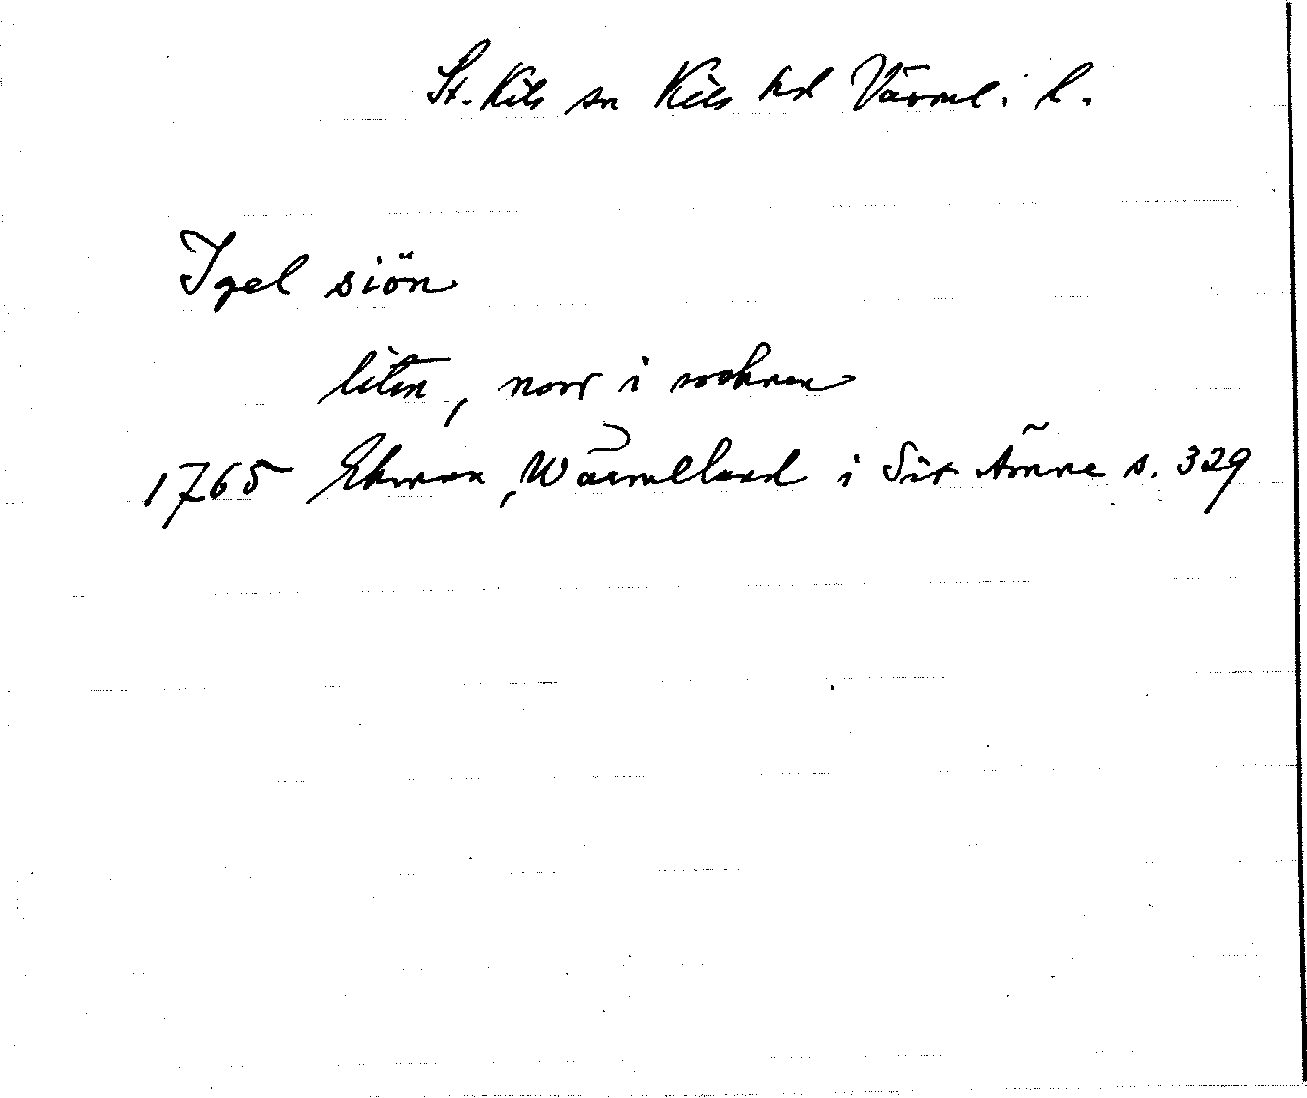 St. Kils sn Kils hd Värml. l.
Igel siön
liten, norr i soknen
1765 Ekman, Wärmelland i Sit Ämne s. 329